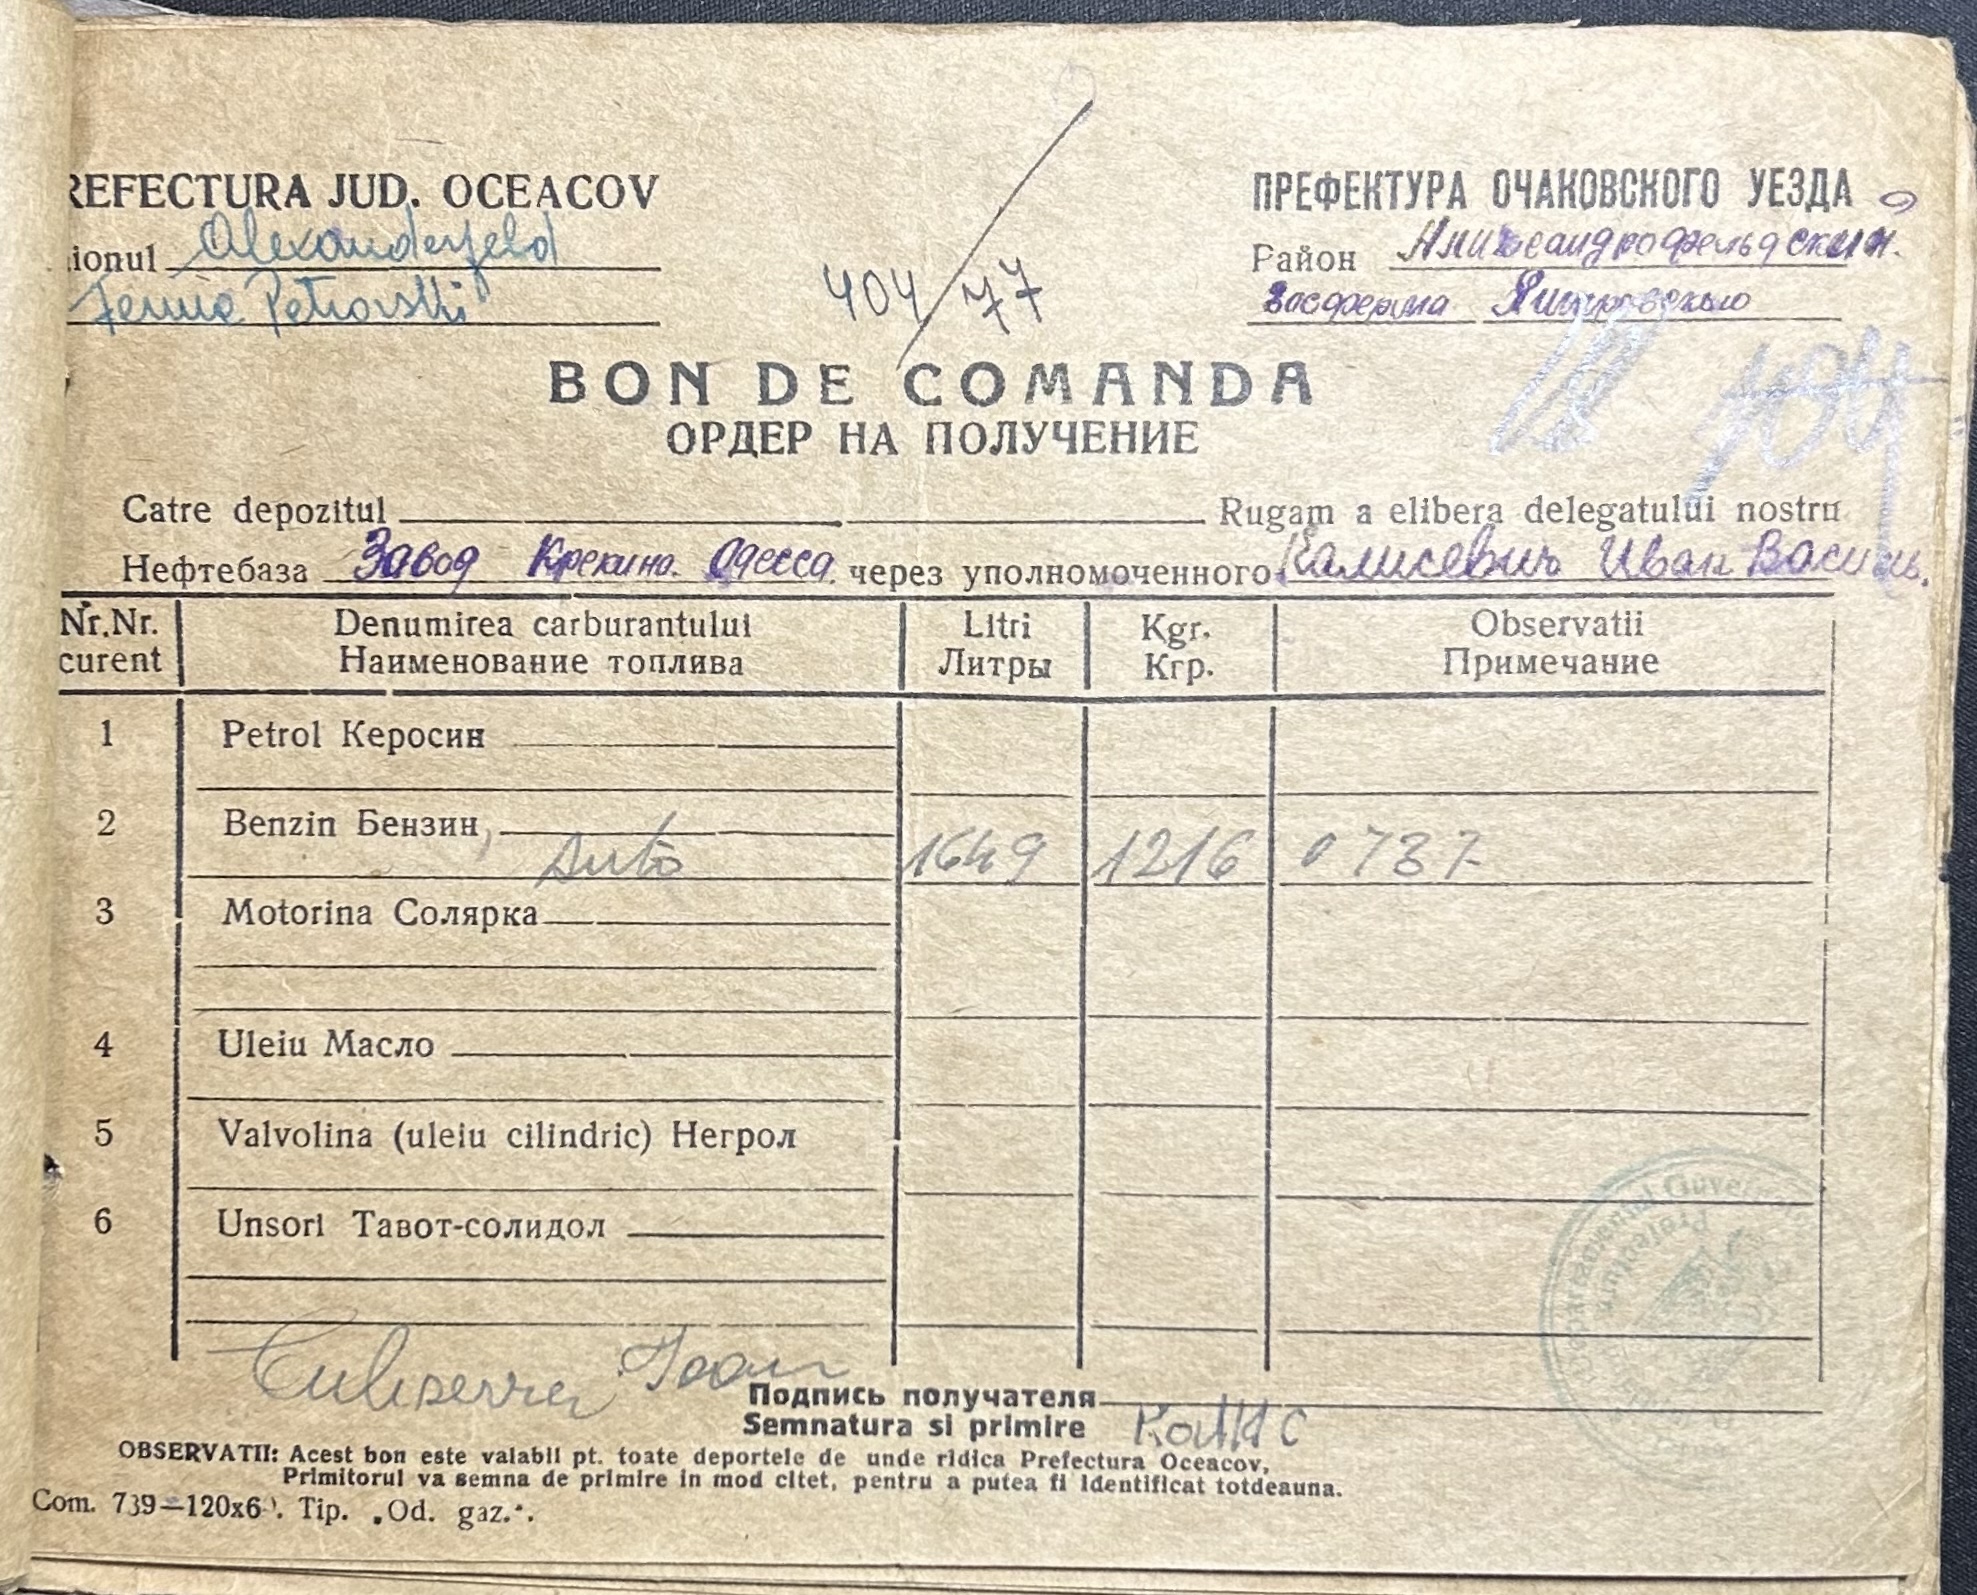 REFECTURA JUD. OCEACOV
ionul Alexanderfeld
Ferma Petrovski
404/77
ПРЕФЕКТУРА ОЧАКОВСКОГО УЕЗДА
Район
Госферма
BON DE COMANDA
ОРДЕР НА ПОЛУЧЕНИЕ
Catre depozitul Rugam a elibera delegatului nostru
Нефтебаза Завод Крекинг. Одесса. через уполномоченного Калисевич Иван Васил.
Nr.Nr. curent
Denumirea carburantului
Наименование топлива
Litri
Литры
Kgr.
Кгр.
Observatii
Примечание
1 Petrol Керосин
2 Benzin Бензин, auto 1649 1216 0737
3 Motorina Солярка
4 Uleiu Масло
5 Valvolina (uleiu cilindric) Негрол
6 Unsori Тавот-солидол
Ioan
Подпись получателя
Semnatura si primire
OBSERVATII: Acest bon este valabil pt. toate deportele de unde ridica Prefectura Oceacov,
Primitorul va semna de primire in mod citet, pentru a putea fi identificat totdeauna.
Com. 739—120x6 . Tip. „Od. gaz.".